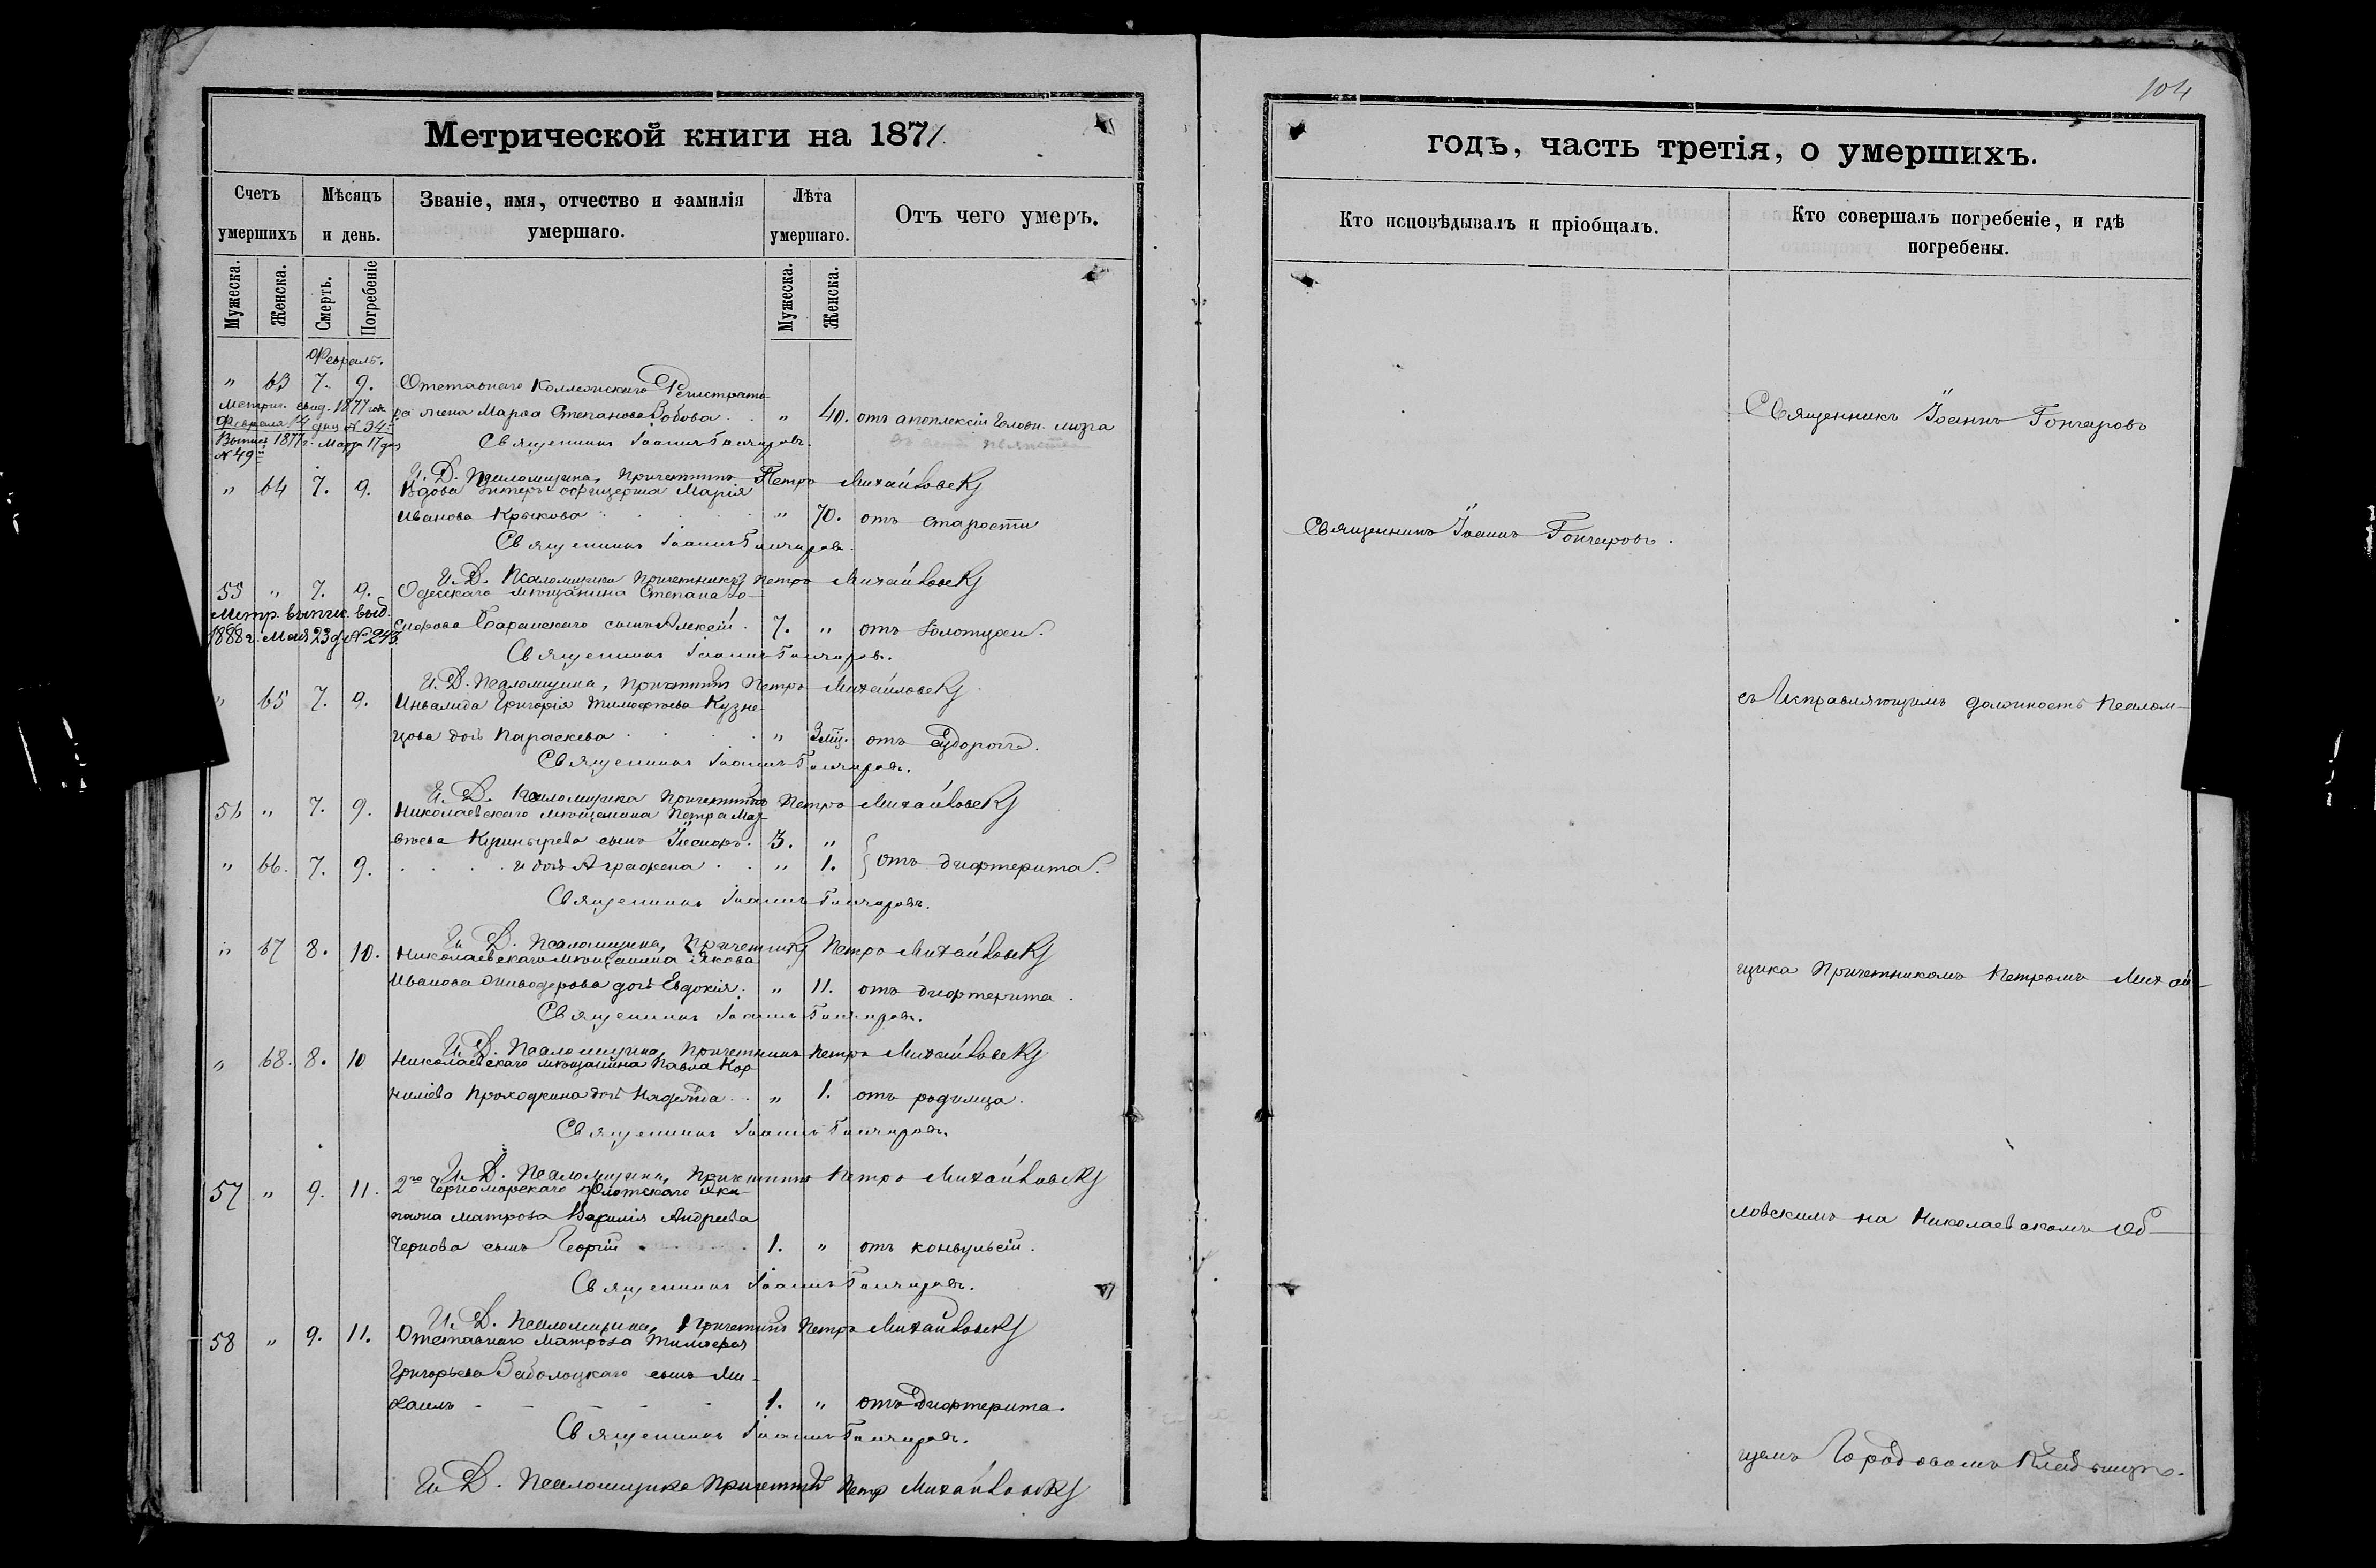 104
Метрической книги на 1871.
годъ, часть третія, о умершихъ.
Счетъ умершихъ
Мѣсяцъ и день.
Званіе, имя, отчество и фамилія умершаго.
Лѣта умершаго.
Отъ чего умеръ.
Кто исповѣдывалъ и пріобщалъ.
Кто совершалъ погребеніе, и гдѣ погребены.
Мужеска. Женска. Смерть. Погребеніе Мужеска. Женска.
Февраль.
" 63 7. 9. Отставнаго Коллежскаго Регистрато-
ра жена Марѳа Степанова " 40. отъ апоплексіи головн. мозга
Метрич. свид. 1877 года
Февраля дня № 34
Выпись 1877 г. Марта 17 дня
№ 49
Священникъ Іоаннъ Гончаровъ.
И. Д. Псаломщика, Причетникъ Петръ Михайловскій
" 64 7. 9. Вдова Унтеръ-офицерша Марія
Иванова Крыкова " 70. отъ старости
Священникъ Іоаннъ Гончаровъ.
И. Д. Псаломщика Причетникъ Петръ Михайловскій
55 " 7. 9. Одесскаго мѣщанина Степана
сынъ Алексѣй. 7. " отъ золотухи.
Метр. выпис. выд.
1888 г. Мая 23 д № 243.
Священникъ Іоаннъ Гончаровъ.
И. Д. Псаломщика, Причетникъ Петръ Михайловскій
" 65 7. 9. Инвалида Григорія Тимофѣева Кузне-
цова дочь Параскева " 3 мц. отъ судорогъ.
Священникъ Іоаннъ Гончаровъ.
И. Д. Псаломщика Причетникъ Петръ Михайловскій
56 " 7. 9. Николаевскаго мѣщанина Петра Мат-
вѣева сынъ 3. "
" 66. 7. 9. и дочь Аграфена " 1. отъ дифтерита.
Священникъ Іоаннъ Гончаровъ.
И. Д. Псаломщика, Причетникъ Петръ Михайловскій
" 67 8. 10. Николаевскаго мѣщанина Якова
Иванова Живодерова дочь Евдокія. " 11. отъ дифтерита.
Священникъ Іоаннъ Гончаровъ.
И. Д. Псаломщика, Причетникъ Петръ Михайловскій
" 68. 8. 10 Николаевскаго мѣщанина Павла Кор-
нилѣва Проходкина дочь Надежда " 1. отъ родимца.
Священникъ Іоаннъ Гончаровъ.
И. Д. Псаломщика, Причетникъ Петръ Михайловскій
57 " 9. 11. 2го Черноморскаго Флотскаго Эки-
пажа матроза Василія Андреева
Чернова сынъ Георгій 1. " отъ конвульсій.
Священникъ Іоаннъ Гончаровъ.
И. Д. Псаломщика, Причетникъ Петръ Михайловскій
58 " 9. 11. Отставнаго Матроза Тимофея
Григорьева Заболоцкаго сынъ Ми-
хаилъ 1. " отъ Дифтерита.
Священникъ Іоаннъ Гончаровъ.
И. Д. Псаломщика Причетникъ Петръ Михайловскій
Священникъ Іоаннъ Гончаровъ.
Священникъ Іоаннъ Гончаровъ
съ Исправляющимъ должность Псалом-
щика Причетникомъ Петромъ Михай-
ловскимъ на Николаевскомъ Об-
щемъ Городовомъ Кладбищѣ.